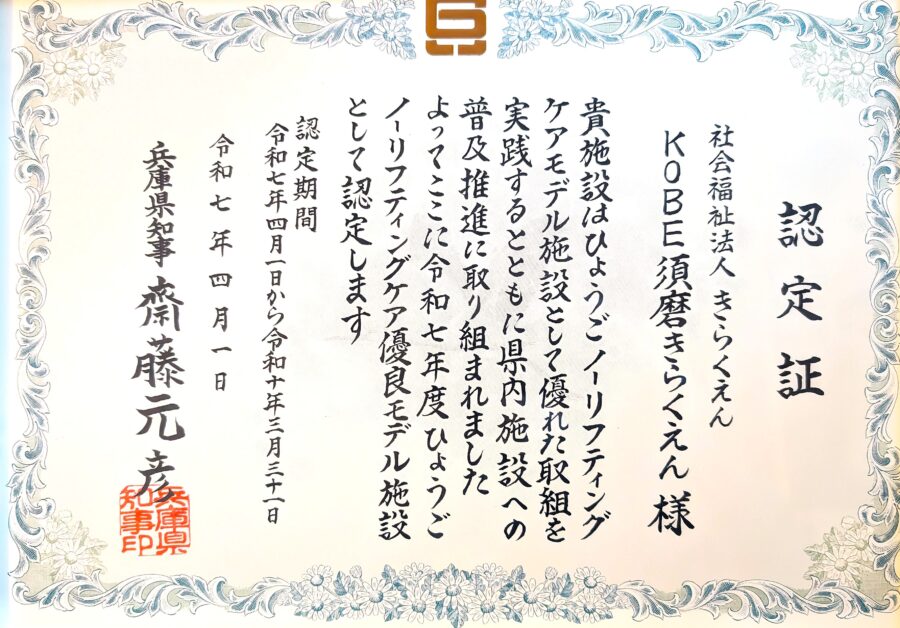 認定証
社会福祉法人 きらくえん
KOBE須磨きらくえん 様
貴施設はひょうごノーリフティング
ケアモデル施設として優れた取組を
実践するとともに県内施設への
普及推進に取り組まれました
よってここに令和七年度ひょうご
ノーリフティングケア優良モデル施設
として認定します
認定期間
令和七年四月一日から令和十年三月三十一日
令和七年四月一日
兵庫県知事 齋藤元彦
兵庫県
知事印